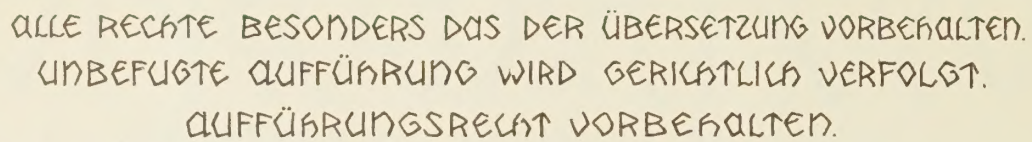 ALLE RECHTE BESONDERS DAS DER ÜBERSETZUNG VORBEHALTEN.
UNBEFUGTE AUFFÜHRUNG WIRD GERICHTLICH VERFOLGT.
AUFFÜHRUNGSRECHT VORBEHALTEN.